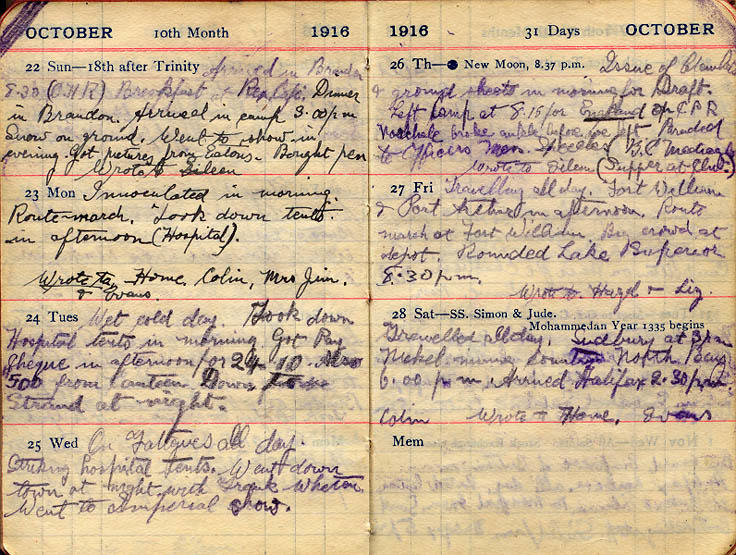 OCTOBER 10th Month 1916
22 Sun—18th after Trinity Arrived in Brandon
8.30 Breakfast at Dinner
in Brandon. Arrived in camp 3.00 pm
Snow on ground. Went to show in
evening. Got pictures from Eatons. Bought pen
Wrote to Eileen
23 Mon Innoculated in morning.
Route-march. Took down tents
in afternoon (Hospital).
Wrote to Home, Colin, Mrs Jim,
& Evans.
24 Tues Wet cold day. Took down
Hospital tents in morning. Got Pay
Cheque in afternoon for 24.10. Also
5.00 from Canteen. Down to
Strand at night.
25 Wed On Fatigues all day.
Striking hospital tents. Went down
town at night with Frank
Went to Imperial show.
1916 31 Days OCTOBER
26 Th— New Moon, 8.37 p.m. Issue of
& ground sheets in morning for Draft.
Left camp at 8.15 for England on CPR
broke ankle before we left Brandon
to Officers Mess.
Wrote to Eileen (Supper at Club.)
27 Fri Travelling all day. Fort William
& Port Arthur in afternoon. Route
march at Fort William. Big crowd at
depot. Rounded Lake Superior
8.30 pm.
Wrote to Hazel & Liz.
28 Sat—SS. Simon & Jude.
Mohammedan Year 1335 begins
Travelled all day. Sudbury at 3 pm
Nickel mines North Bay
6.00 pm. Arrived Halifax 2.30 pm.
Colin Wrote to Home. Evans
Mem